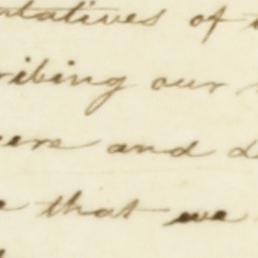 ntatives of
ribing our
eers and
that we